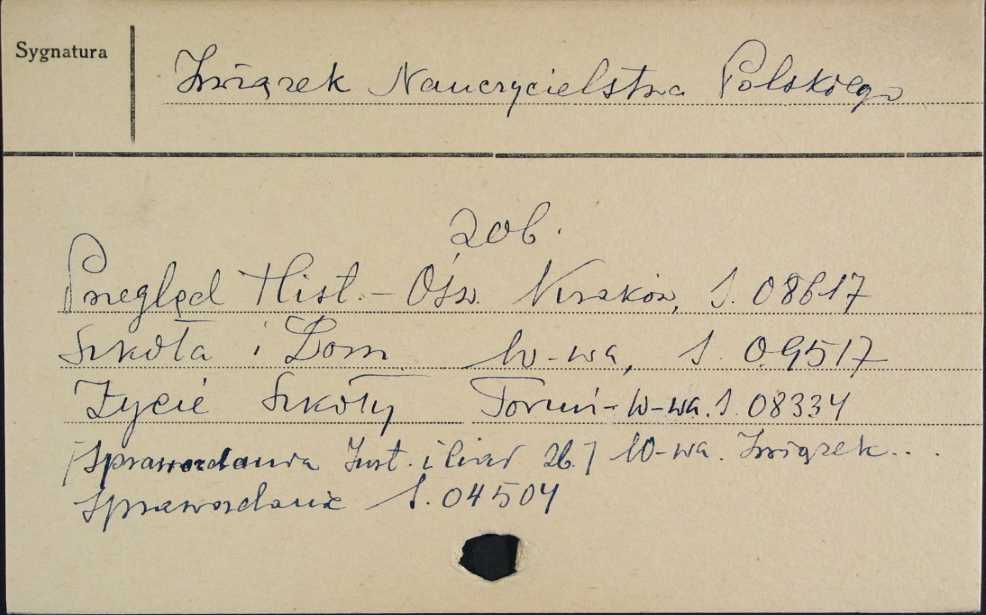 Sygnatura
Związek Nauczycielstwa Polskiego
zob.
Przegląd Hist.-Ośw. Kraków, S. 08617
Szkoła i Dom W-wa, S. 09517
Życie Szkoły Toruń-W-wa. S. 08334
[Sprawozdania Inst. i Zb.] W-wa. Związek...
Sprawozdanie S. 04504